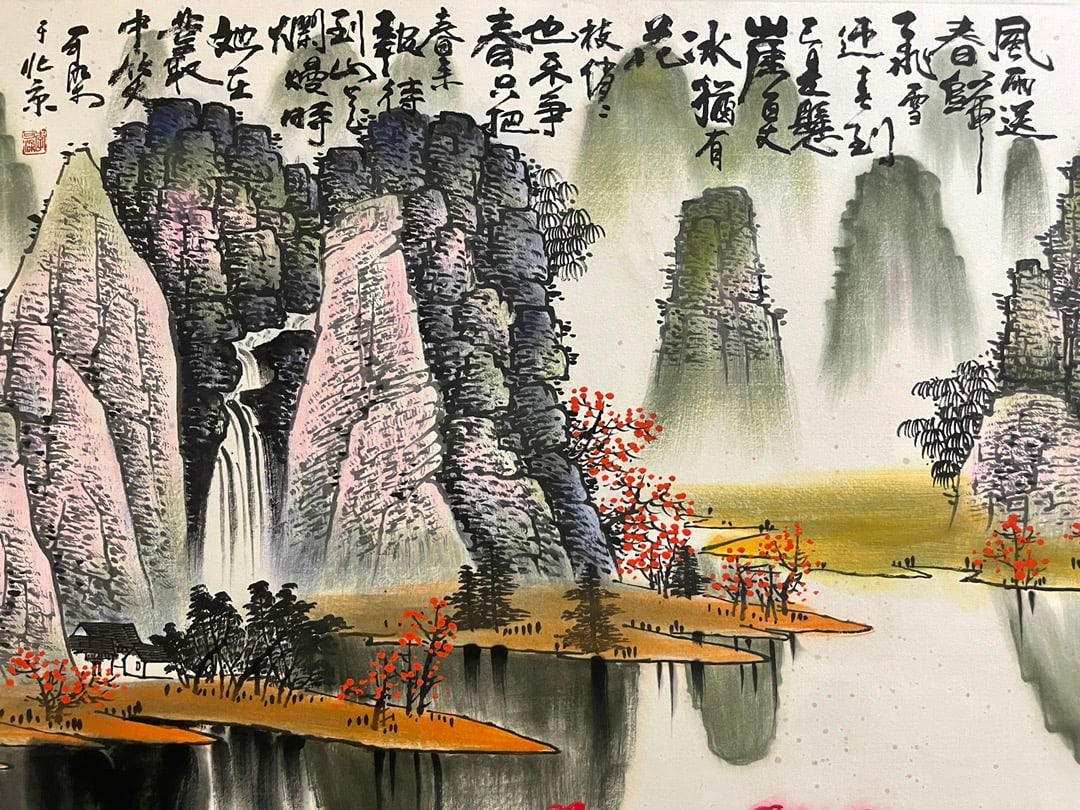 風雨送
春歸
飛雪
迎春到
已是懸
崖百丈
冰猶有
花
枝俏〻
也不爭
春只把
春来
報待
到山花
爛熳時
她在
叢
中笑
于北京